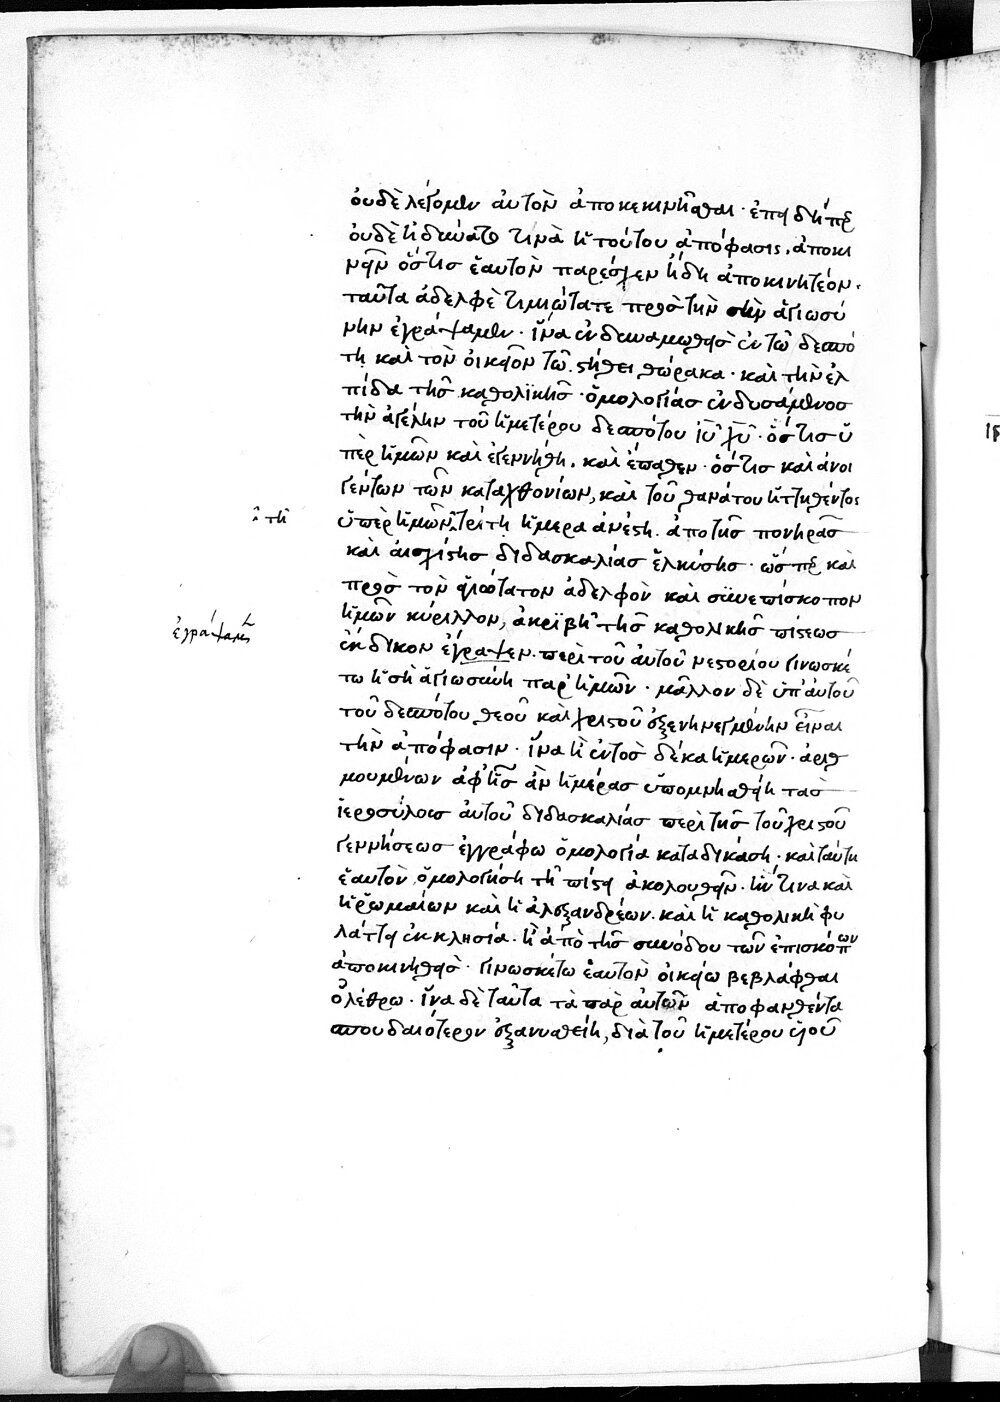 ὀυδὲ λέγομεν ἀυτὸν ἀποκεκινῆσθαι· ἐπειδήπερ
ὀυδὲ ἠδύνατό τινὰ ἡ τούτου ἀπόφασις, ἀποκι
νεῖν ὅστις ἑαυτὸν παρέσχεν ἤδη ἀποκινητέον.
ταῦτα ἀδελφὲ τιμιώτατε πρὸς τὴν σὴν ἁγιωσύ
νην ἐγράψαμεν· ἵνα ἐνδυναμωθεὶς ἐν τῶ δεσπό
τη καὶ τὸν οἰκεῖον τῶ στήθει θώρακα· καὶ τὴν ἐλ
πίδα τῆς καθολϊκῆς ὁμολογίας ἐνδυσάμενος
τὴν ἀγέλην τοῦ ἡμετέρου δεσπότου ἰῦ χῦ· ὅστις ὑ
πὲρ ἡμῶν καὶ ἐγεννήθη, καὶ ἔπαθεν· ὅστις καὶ ἀνοι
γέντων τῶν καταχθονίων, καὶ τοῦ θανάτου ἡττηθέντος
ὑπὲρ ἡμῶν, τρίτη ἡμερα ἀνέστη. ἀπο τῆς πονηρᾶς
τῆ
καὶ ἀισχίστης διδασκαλίας ἑλκύσης· ὥσπερ καὶ
πρὸς τὸν φιλώτατον ἀδελφὸν καὶ συνεπίσκοπον
ἡμῶν κύριλλον, ἀκρϊβῆ τῆς καθολικῆς πίστεως
ἐγράψαμεν
ἔκδικον ἔγραψεν. περὶ τοῦ ἀυτοῦ νεστορίου γινωσκέ
τω ἡ σὴ ἁγιωσύνη παρ' ἡμῶν· μᾶλλον δὲ ὑπ' ἀυτοῦ
τοῦ δεσπότου θεοῦ καὶ χριστοῦ ἐξενηνεγμένην εἶναι
τὴν ἀπόφασιν· ἵνα ἢ ἐντὸς δέκα ἡμερῶν· ἀριθ
μουμένων ἀφ' ἧς ἂν ἡμέρας ὑπομνησθείη τὰς
ἱεροσύλους ἀυτοῦ διδασκαλίας περὶ τῆς τοῦ χριστοῦ
γεννήσεως ἐγγράφω ὁμολογία καταδικάση· καὶ ταύτη
ἑαυτὸν ὁμολογήση τῆ πίστει ἀκολουθεῖν· ἥν τινα καὶ
ἡ ῥωμαίων καὶ ἡ ἀλεξανδρέων. καὶ ἡ καθολικὴ φυ
λάττει ἐκκλησία· ἢ ἀπὸ τῆς συνόδου τῶν ἐπισκόπων
ἀποκινηθεὶς· γινωσκέτω ἑαυτὸν οἰκείω βεβλάφθαι
ὀλέθρω. ἵνα δὲ ταῦτα τὰ παρ ἀυτῶν ἀποφανθέντα
σπουδαιότερον ἐξανυσθείη, διὰ τοῦ ἡμετέρου ὑιοῦ